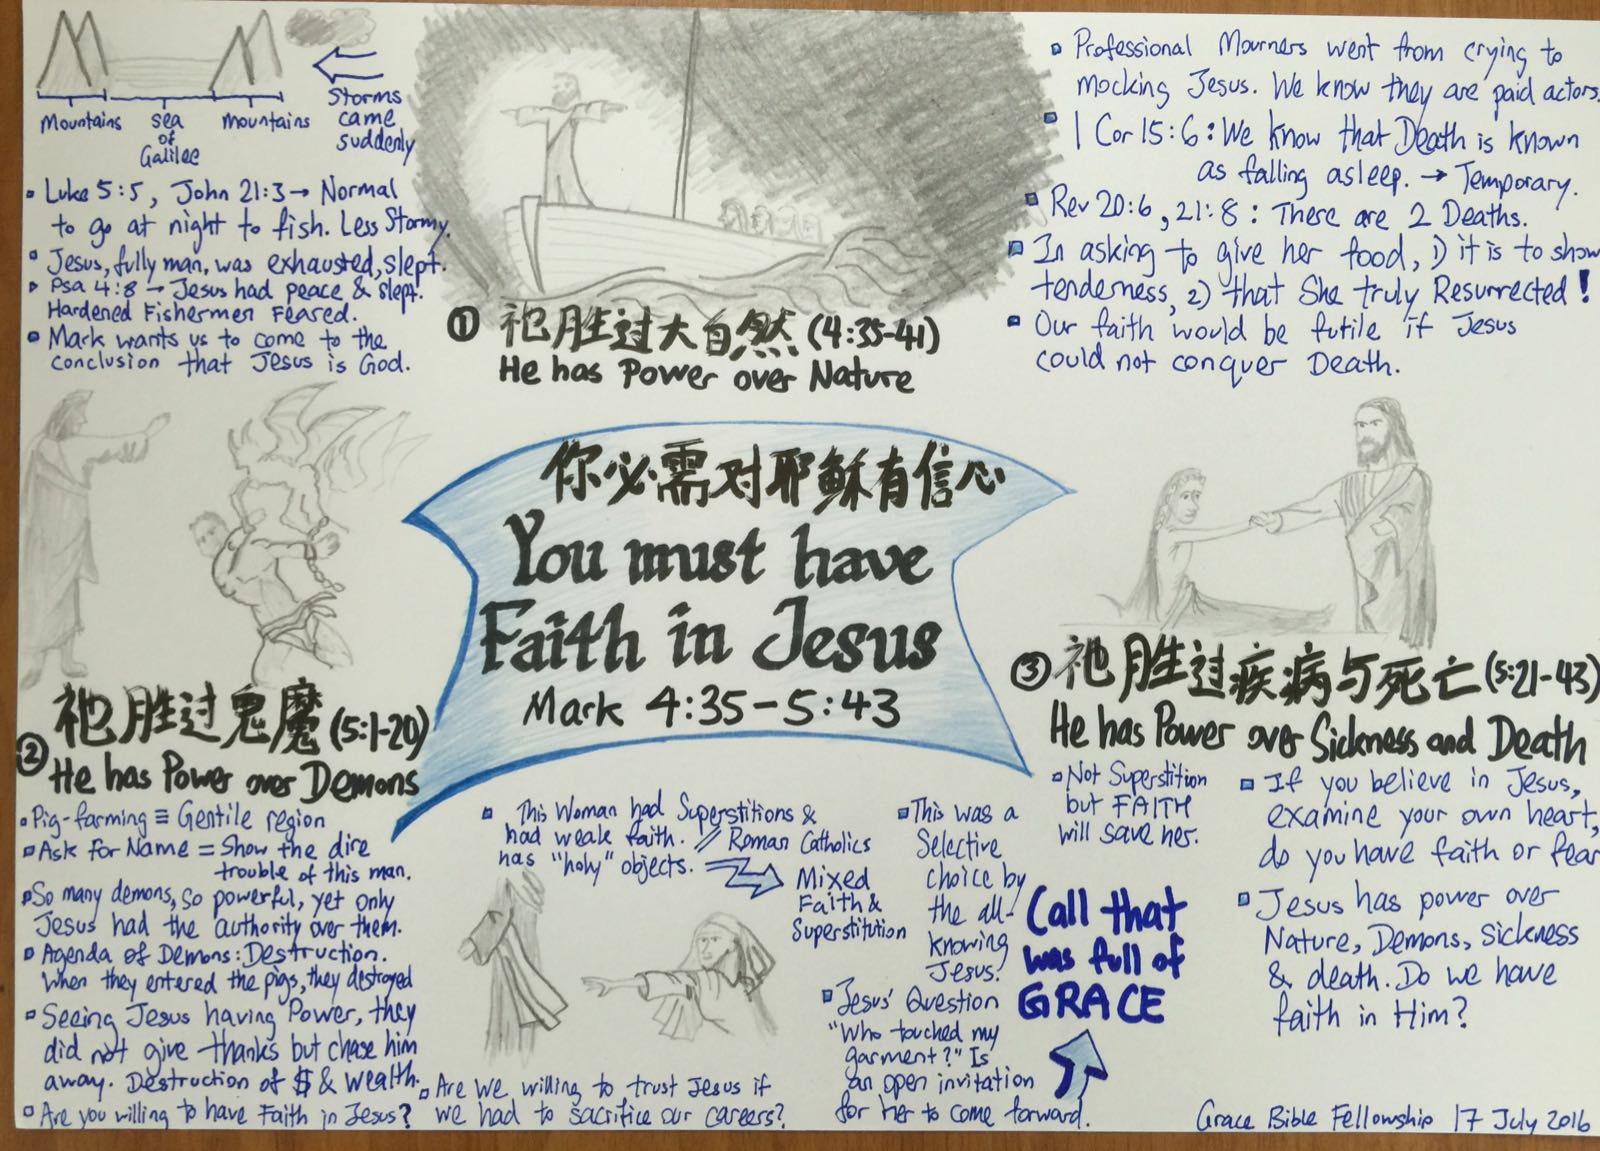 Mountains
sea
of
Galilee
Mountains
Storms
came
suddenly
Luke 5:5, John 21:3 → Normal
to go at night to fish. Less Stormy.
Jesus, fully man, was exhausted, slept.
Psa 4:8 → Jesus had peace & slept.
Hardened Fishermen Feared.
Mark wants us to come to the
conclusion that Jesus is God.
① 祂胜过大自然 (4:35-41)
He has Power over Nature
Professional Mourners went from crying to
mocking Jesus. We know they are paid actors.
1 Cor 15:6: We know that Death is known
as falling asleep. → Temporary.
Rev 20:6, 21:8: There are 2 Deaths.
In asking to give her food, 1) it is to show
tenderness, 2) that She truly Resurrected!
Our faith would be futile if Jesus
could not conquer Death.
你必需对耶稣有信心
You must have
Faith in Jesus
Mark 4:35-5:43
② 祂胜过鬼魔 (5:1-20)
He has Power over Demons
Pig-farming ≡ Gentile region
Ask for Name = Show the dire
trouble of this man.
So many demons, so powerful, yet only
Jesus had the authority over them.
Agenda of Demons: Destruction.
When they entered the pigs, they destroyed
Seeing Jesus having Power, they
did not give thanks but chase him
away. Destruction of $ & wealth.
Are you willing to have Faith in Jesus?
Are we willing to trust Jesus if
we had to sacrifice our careers?
③ 祂胜过疾病与死亡 (5:21-43)
He has Power over Sickness and Death
This Woman had Superstitions &
had weak faith. // Roman Catholics
has "holy" objects.
Mixed
Faith &
Superstitution
This was a
Selective
choice by
the all-
knowing
Jesus!
Jesus' Question
"Who touched my
garment?" Is
an open invitation
for her to come forward.
Not Superstition
but FAITH
will save her.
Call that
was full of
GRACE
If you believe in Jesus,
examine your own heart,
do you have faith or fear
Jesus has power over
Nature, Demons, sickness
& death. Do we have
faith in Him?
Grace Bible Fellowship 17 July 2016